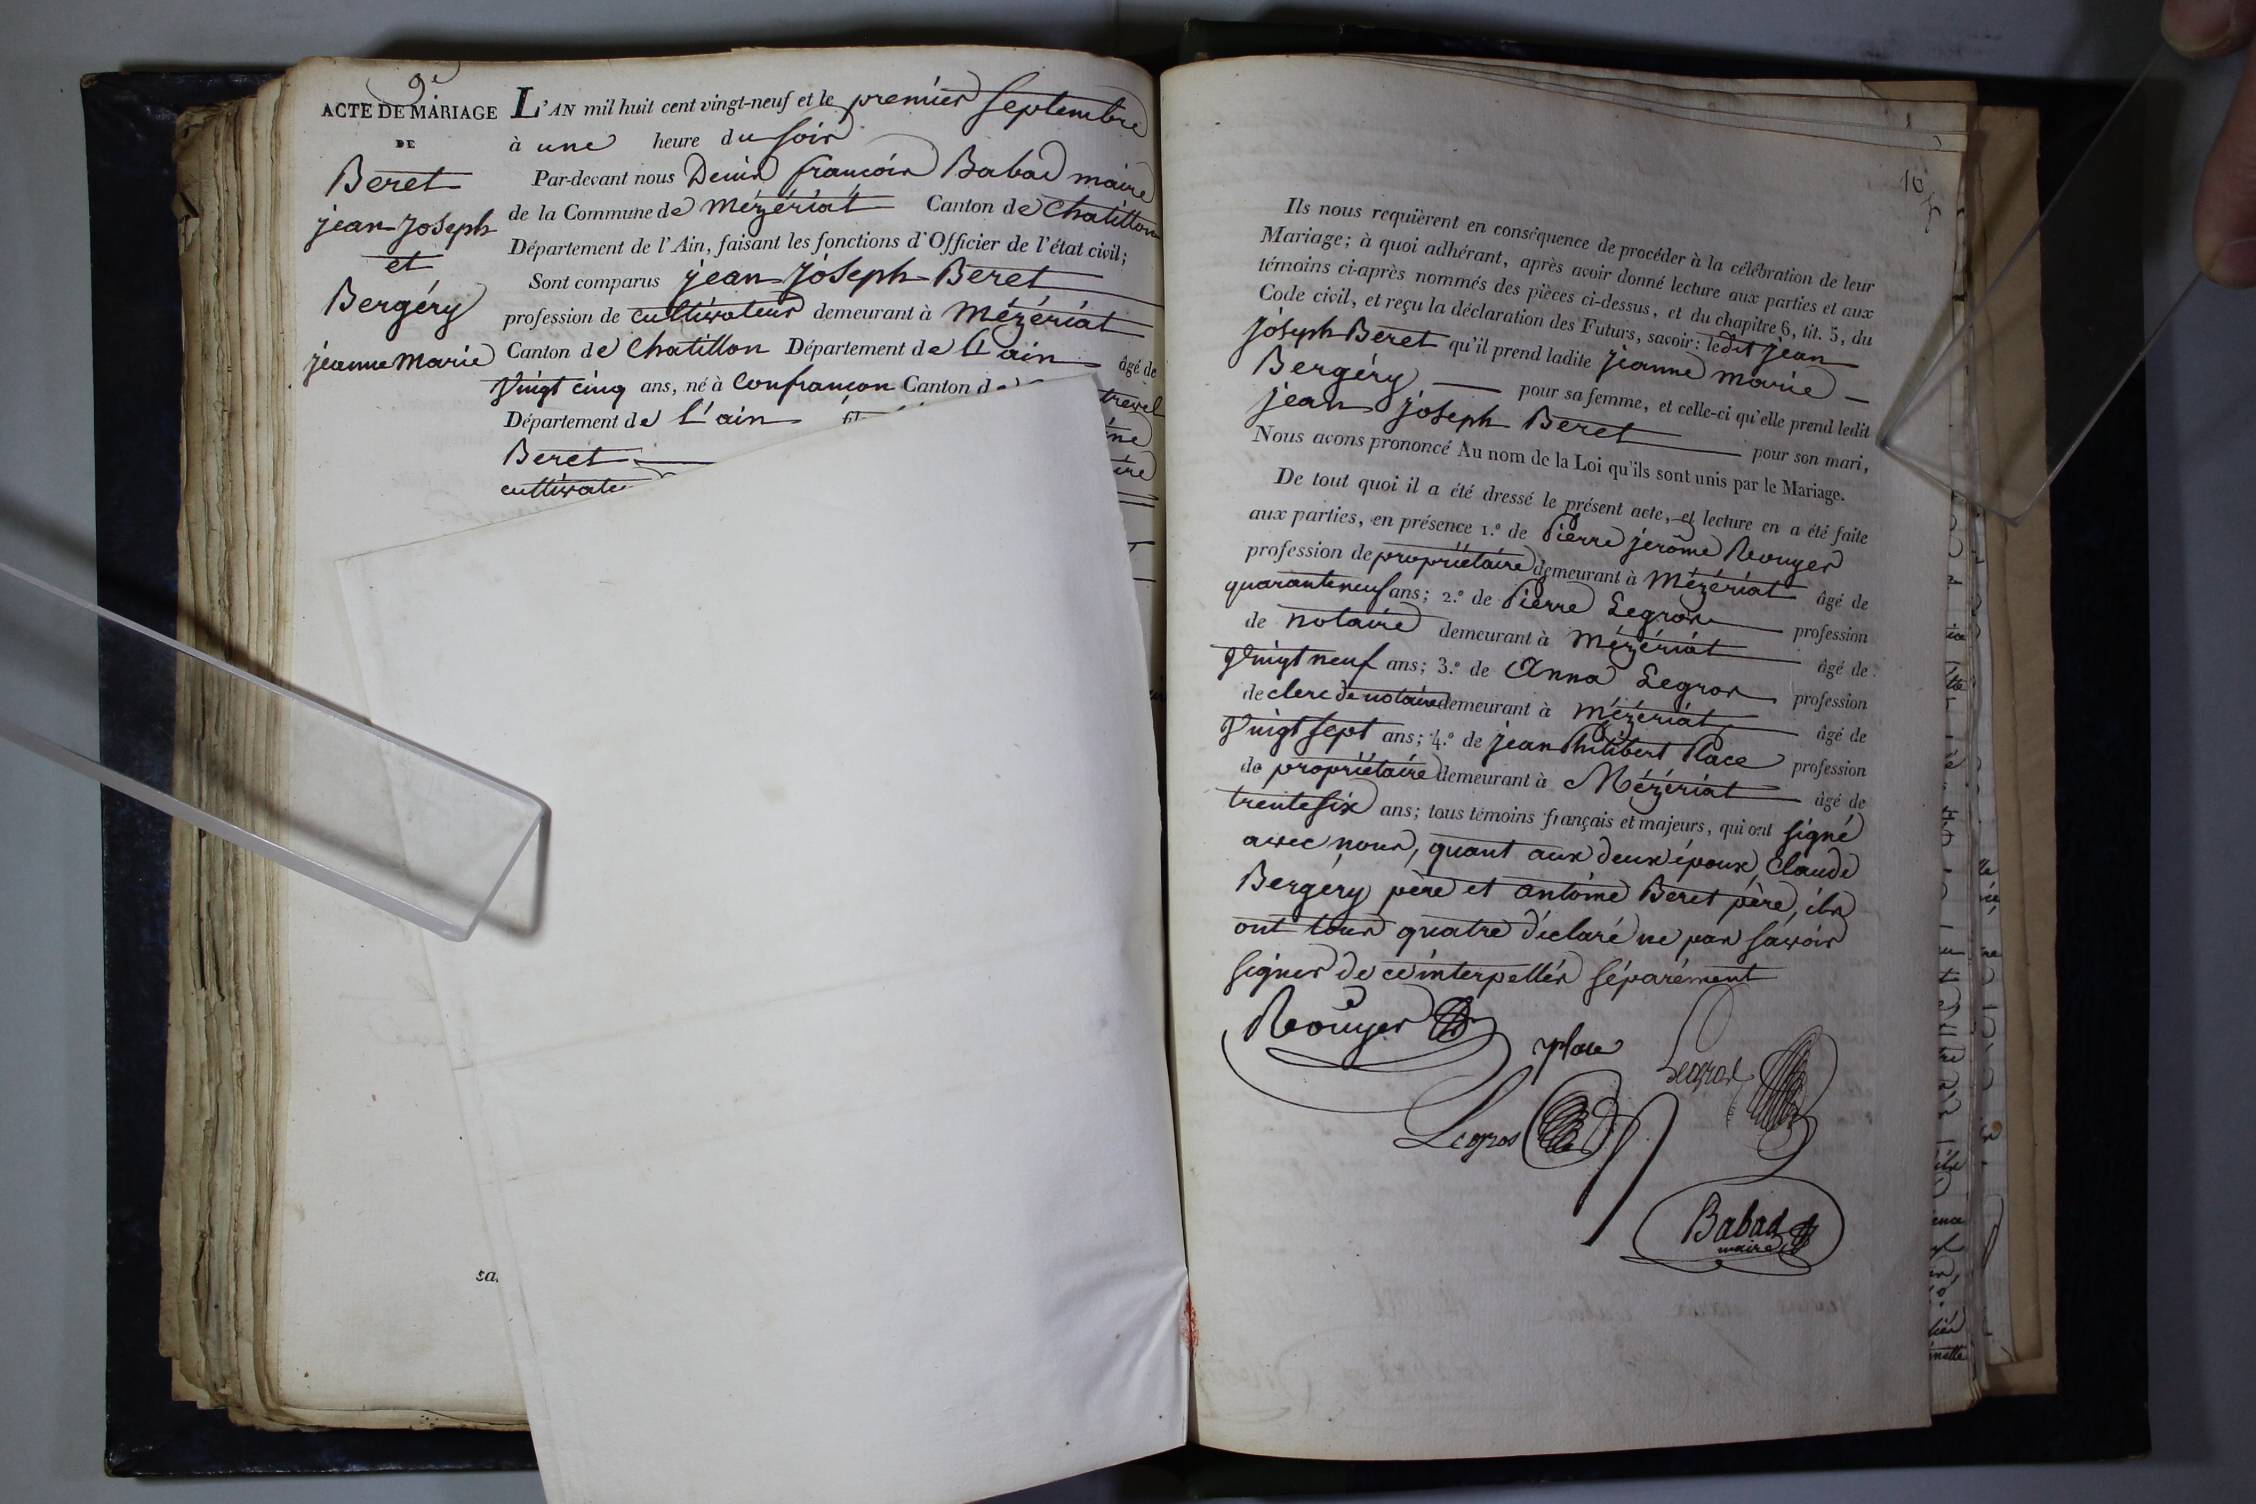 9e
ACTE DE MARIAGE
DE
Beret
jean Joseph
et
Bergéry
jeanne Marie
L'AN mil huit cent vingt-neuf et le premier Septembre
à une heure du soir
Par-devant nous Denis françois Babad maire
de la Commune de Mézériat Canton de Chatillon
Département de l'Ain, faisant les fonctions d'Officier de l'état civil;
Sont comparus jean Joseph Beret
profession de cultivateur demeurant à Mézériat
Canton de Chatillon Département de l'ain âgé de
Vingt cinq ans, né à Confrançon Canton d
Département de l'ain
Beret
cultivate
Ils nous requièrent en conséquence de procéder à la célébration de leur
Mariage; à quoi adhérant, après avoir donné lecture aux parties et aux
témoins ci-après nommés des pièces ci-dessus, et du chapitre 6, tit. 5, du
Code civil, et reçu la déclaration des Futurs, savoir: ledit jean
Joseph Beret qu'il prend ladite Jeanne marie
Bergéry pour sa femme, et celle-ci qu'elle prend ledit
jean Joseph Beret pour son mari,
Nous avons prononcé Au nom de la Loi qu'ils sont unis par le Mariage.
De tout quoi il a été dressé le présent acte, et lecture en a été faite
aux parties, en présence 1.º de Pierre jerôme Rouyer
profession de propriétaire demeurant à Mézériat âgé de
quarante neuf ans; 2.º de Pierre Legros profession
de notaire demeurant à Mézériat âgé de
Vingt neuf ans; 3.º de Anna Legros profession
de clerc de notaire demeurant à Mézériat âgé de
Vingt Sept ans; 4.º de jean Philibert Place profession
de propriétaire demeurant à Mézériat âgé de
trente six ans; tous témoins français et majeurs, qui ont signé
avec nous, quant aux deux époux, Claude
Bergéry père et antoine Beret père, ils
ont tous quatre déclaré ne pas savoir
signer de ce interpellés séparément
Rouyer
place
Legros
Legros
Babad
maire